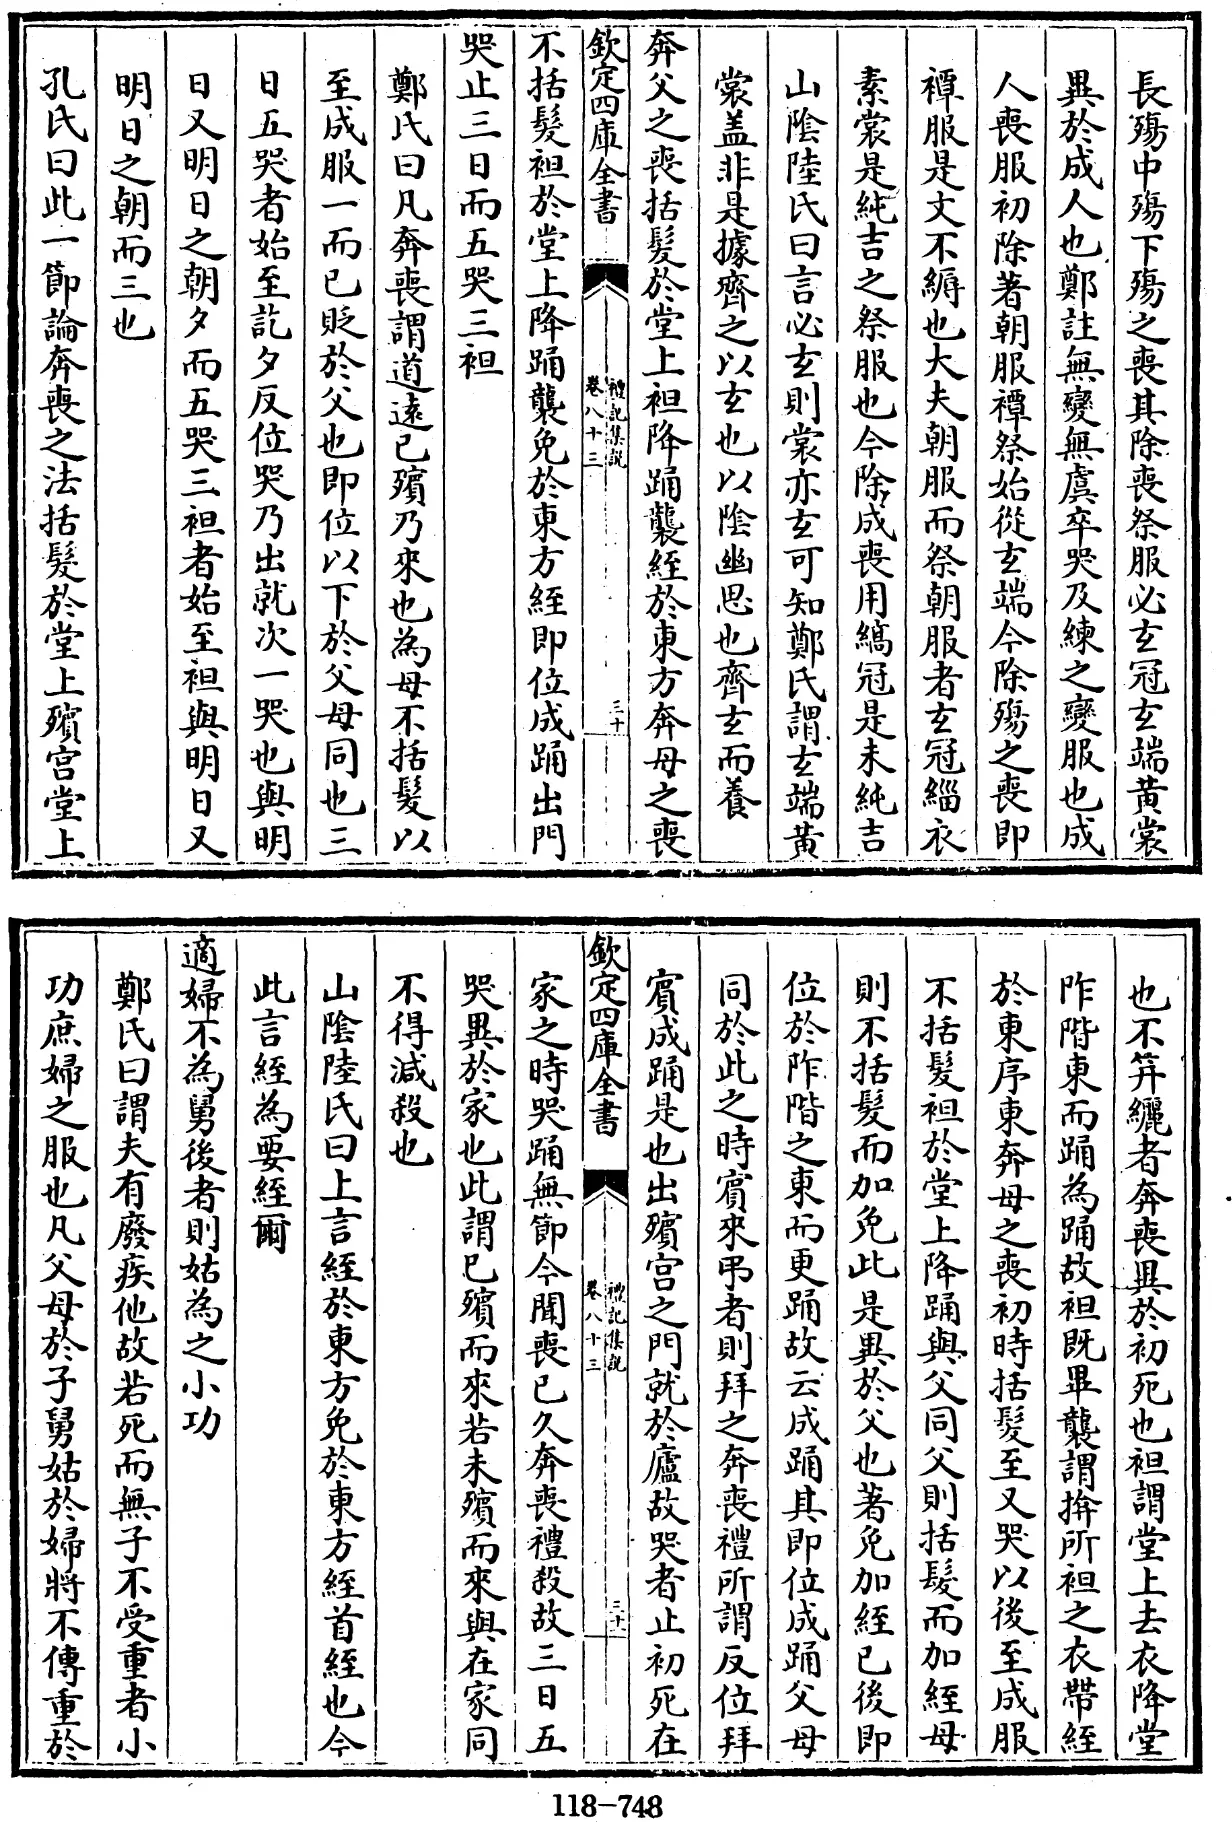 長殤中殤下殤之喪其除喪祭服必玄冠玄端黄裳
異於成人也鄭註無變無虞卒哭及練之變服也成
人喪服初除著朝服禫祭始從玄端今除殤之喪即
禫服是文不縟也大夫朝服而祭朝服者玄冠緇衣
素裳是純吉之祭服也今除成喪用縞冠是未純吉
山陰陸氏曰言必玄則裳亦玄可知鄭氏謂玄端黄
裳盖非是據齊之以玄也以陰幽思也齊玄而養
奔父之喪括髪於堂上袒降踊襲絰於東方奔母之喪
欽定四庫全書
禮記集説
卷八十三
三十
不括髪袒於堂上降踊襲免於東方絰即位成踊出門
哭止三日而五哭三袒
鄭氏曰凡奔喪謂道逺已殯乃來也為母不括髪以
至成服一而已貶於父也即位以下於父母同也三
日五哭者始至訖夕反位哭乃出就次一哭也與明
日又明日之朝夕而五哭三袒者始至袒與明日又
明日之朝而三也
孔氏曰此一節論奔喪之法括髪於堂上殯宫堂上
也不笄纚者奔喪異於初死也袒謂堂上去衣降堂
阼階東而踊為踊故袒既畢襲謂揜所袒之衣帶絰
於東序東奔母之喪初時括髪至又哭以後至成服
不括髪袒於堂上降踊與父同父則括髪而加絰母
則不括髪而加免此是異於父也著免加絰已後即
位於阼階之東而更踊故云成踊其即位成踊父母
同於此之時賓來弔者則拜之奔喪禮所謂反位拜
賓成踊是也出殯宫之門就於廬故哭者止初死在
欽定四庫全書
禮記集説
卷八十三
三十一
家之時哭踊無節今聞喪已久奔喪禮殺故三日五
哭異於家也此謂已殯而來若未殯而來與在家同
不得減殺也
山陰陸氏曰上言絰於東方免於東方絰首絰也今
此言絰為要絰爾
適婦不為舅後者則姑為之小功
鄭氏曰謂夫有廢疾他故若死而無子不受重者小
功庶婦之服也凡父母於子舅姑於婦將不傳重於
118-748